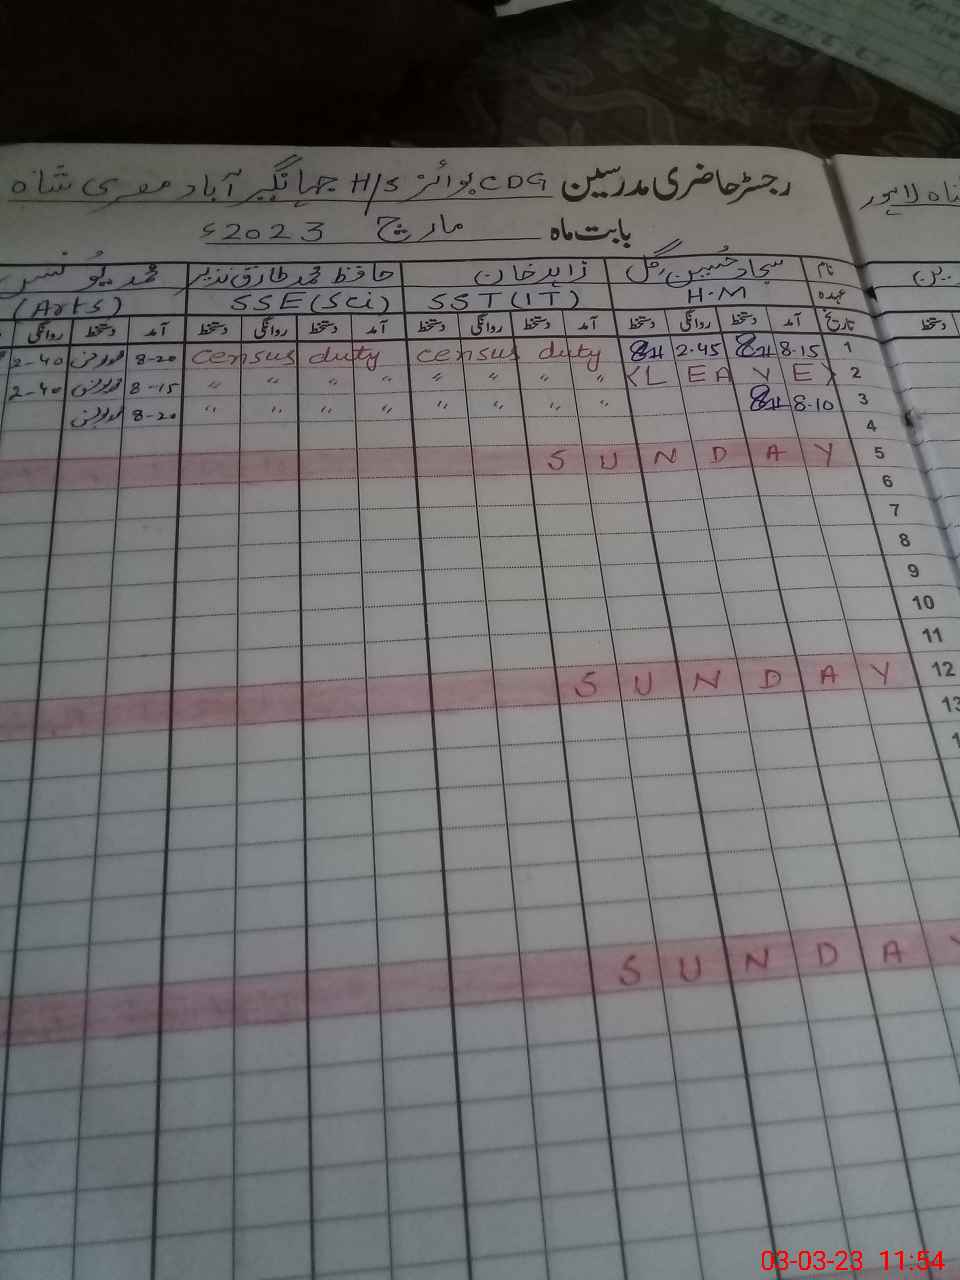 رجسٹر حاضری مدرسین CDG بوائز H/S جہانگیر آباد مصری شاہ
لاہور
بابت ماہ مارچ 2023ء
نام سجاد حسین گل زاہد خان حافظ محمد طارق نذیر محمد یونس
عہدہ H.M SST (IT) SSE (Sci) (Arts)
تاریخ آمد دستخط روانگی دستخط آمد دستخط روانگی دستخط آمد دستخط روانگی دستخط آمد دستخط روانگی دستخط
1 8-15 2.45 census duty census duty 8-20 2-40
2 <LEAVE> " " " " " " " " 8-15 2-40
3 8-10 " " " " " " " " 8-20
4
5 SUNDAY
6
7
8
9
10
11
12 SUNDAY
13
SUNDAY
03-03-23 11:54